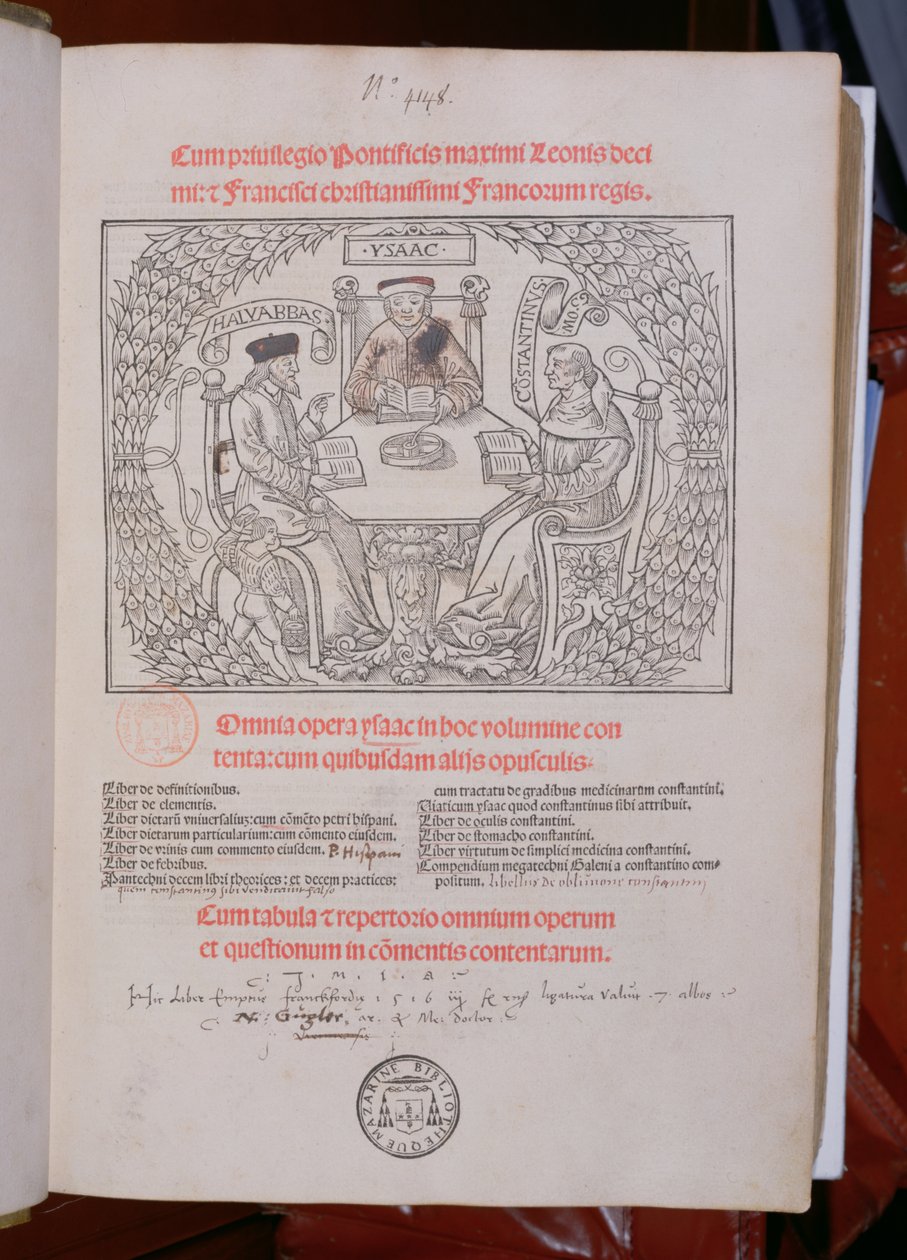 No 4148.
Cum priuilegio Pontificis maximi Leonis deci
mi: ⁊ Francisci christianissimi Francorum regis.
·YSAAC·
HALYABBAS
CōSTANTINVS·
MOꝰ
Omnia opera ysaac in hoc volumine con
tenta: cum quibusdam alijs opusculis.
Liber de definitionibus.
Liber de elementis.
Liber dietarū vniuersaliuʒ: cum cōmēto petri hispani.
Liber dietarum particularium: cum cōmento eiusdem.
Liber de vrinis cum commento eiusdem. P. Hispani
Liber de febribus.
Pantechni decem libri theorices: et decem practices:
quem constantinus sibi vendicauit falso
cum tractatu de gradibus medicinarum constantini.
Viaticum ysaac quod constantinus sibi attribuit.
Liber de oculis constantini.
Liber de stomacho constantini.
Liber virtutum de simplici medicina constantini.
Compendium megatechni Galeni a constantino com-
positum. libellus de obliuione constantini
Cum tabula ⁊ repertorio omnium operum
et questionum in cōmentis contentarum.
Hic Liber Emptus franckfordie 1516 ligatura Valuit 7 albos
N: Gugler, ar. & Me: doctor
BIBLIOTHEQUE MAZARINE